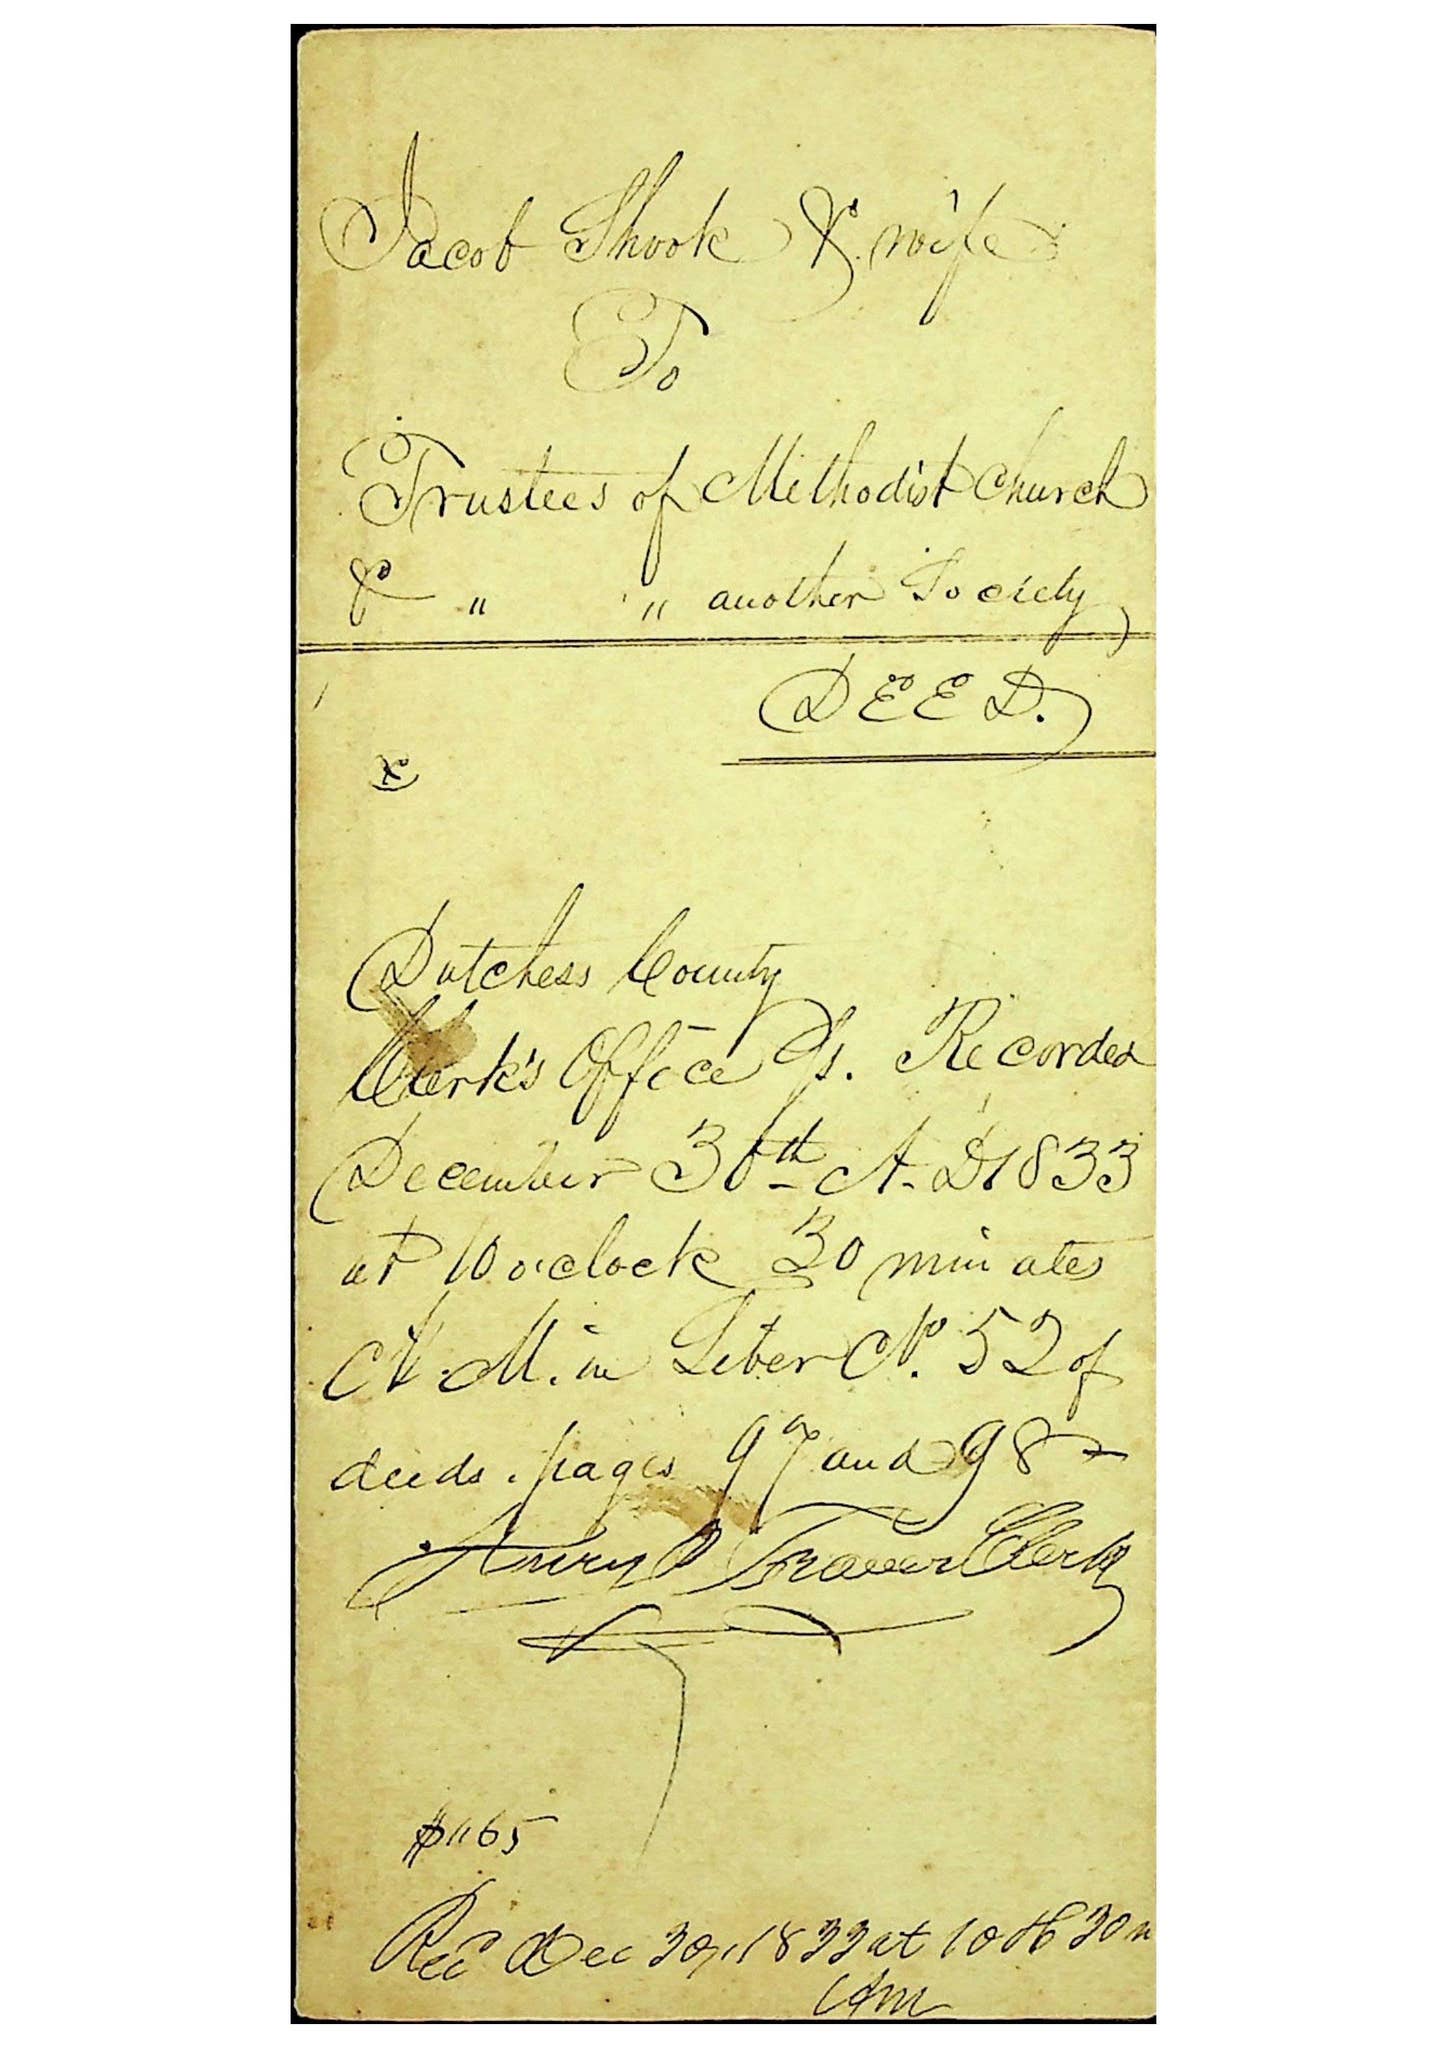 Jacob Shook & wife
To
Trustees of Methodist Church
& " " another Society
DEED.
Dutchess County
Clerk's Office Ss. Recorded
December 30th A.D. 1833
at 10 o'clock 30 minutes
A.M. in Liber No. 52 of
deeds. pages 97 and 98
Traver Clerk
$"65
Recd Dec 30, 1833 at 10 H 30 m
AM